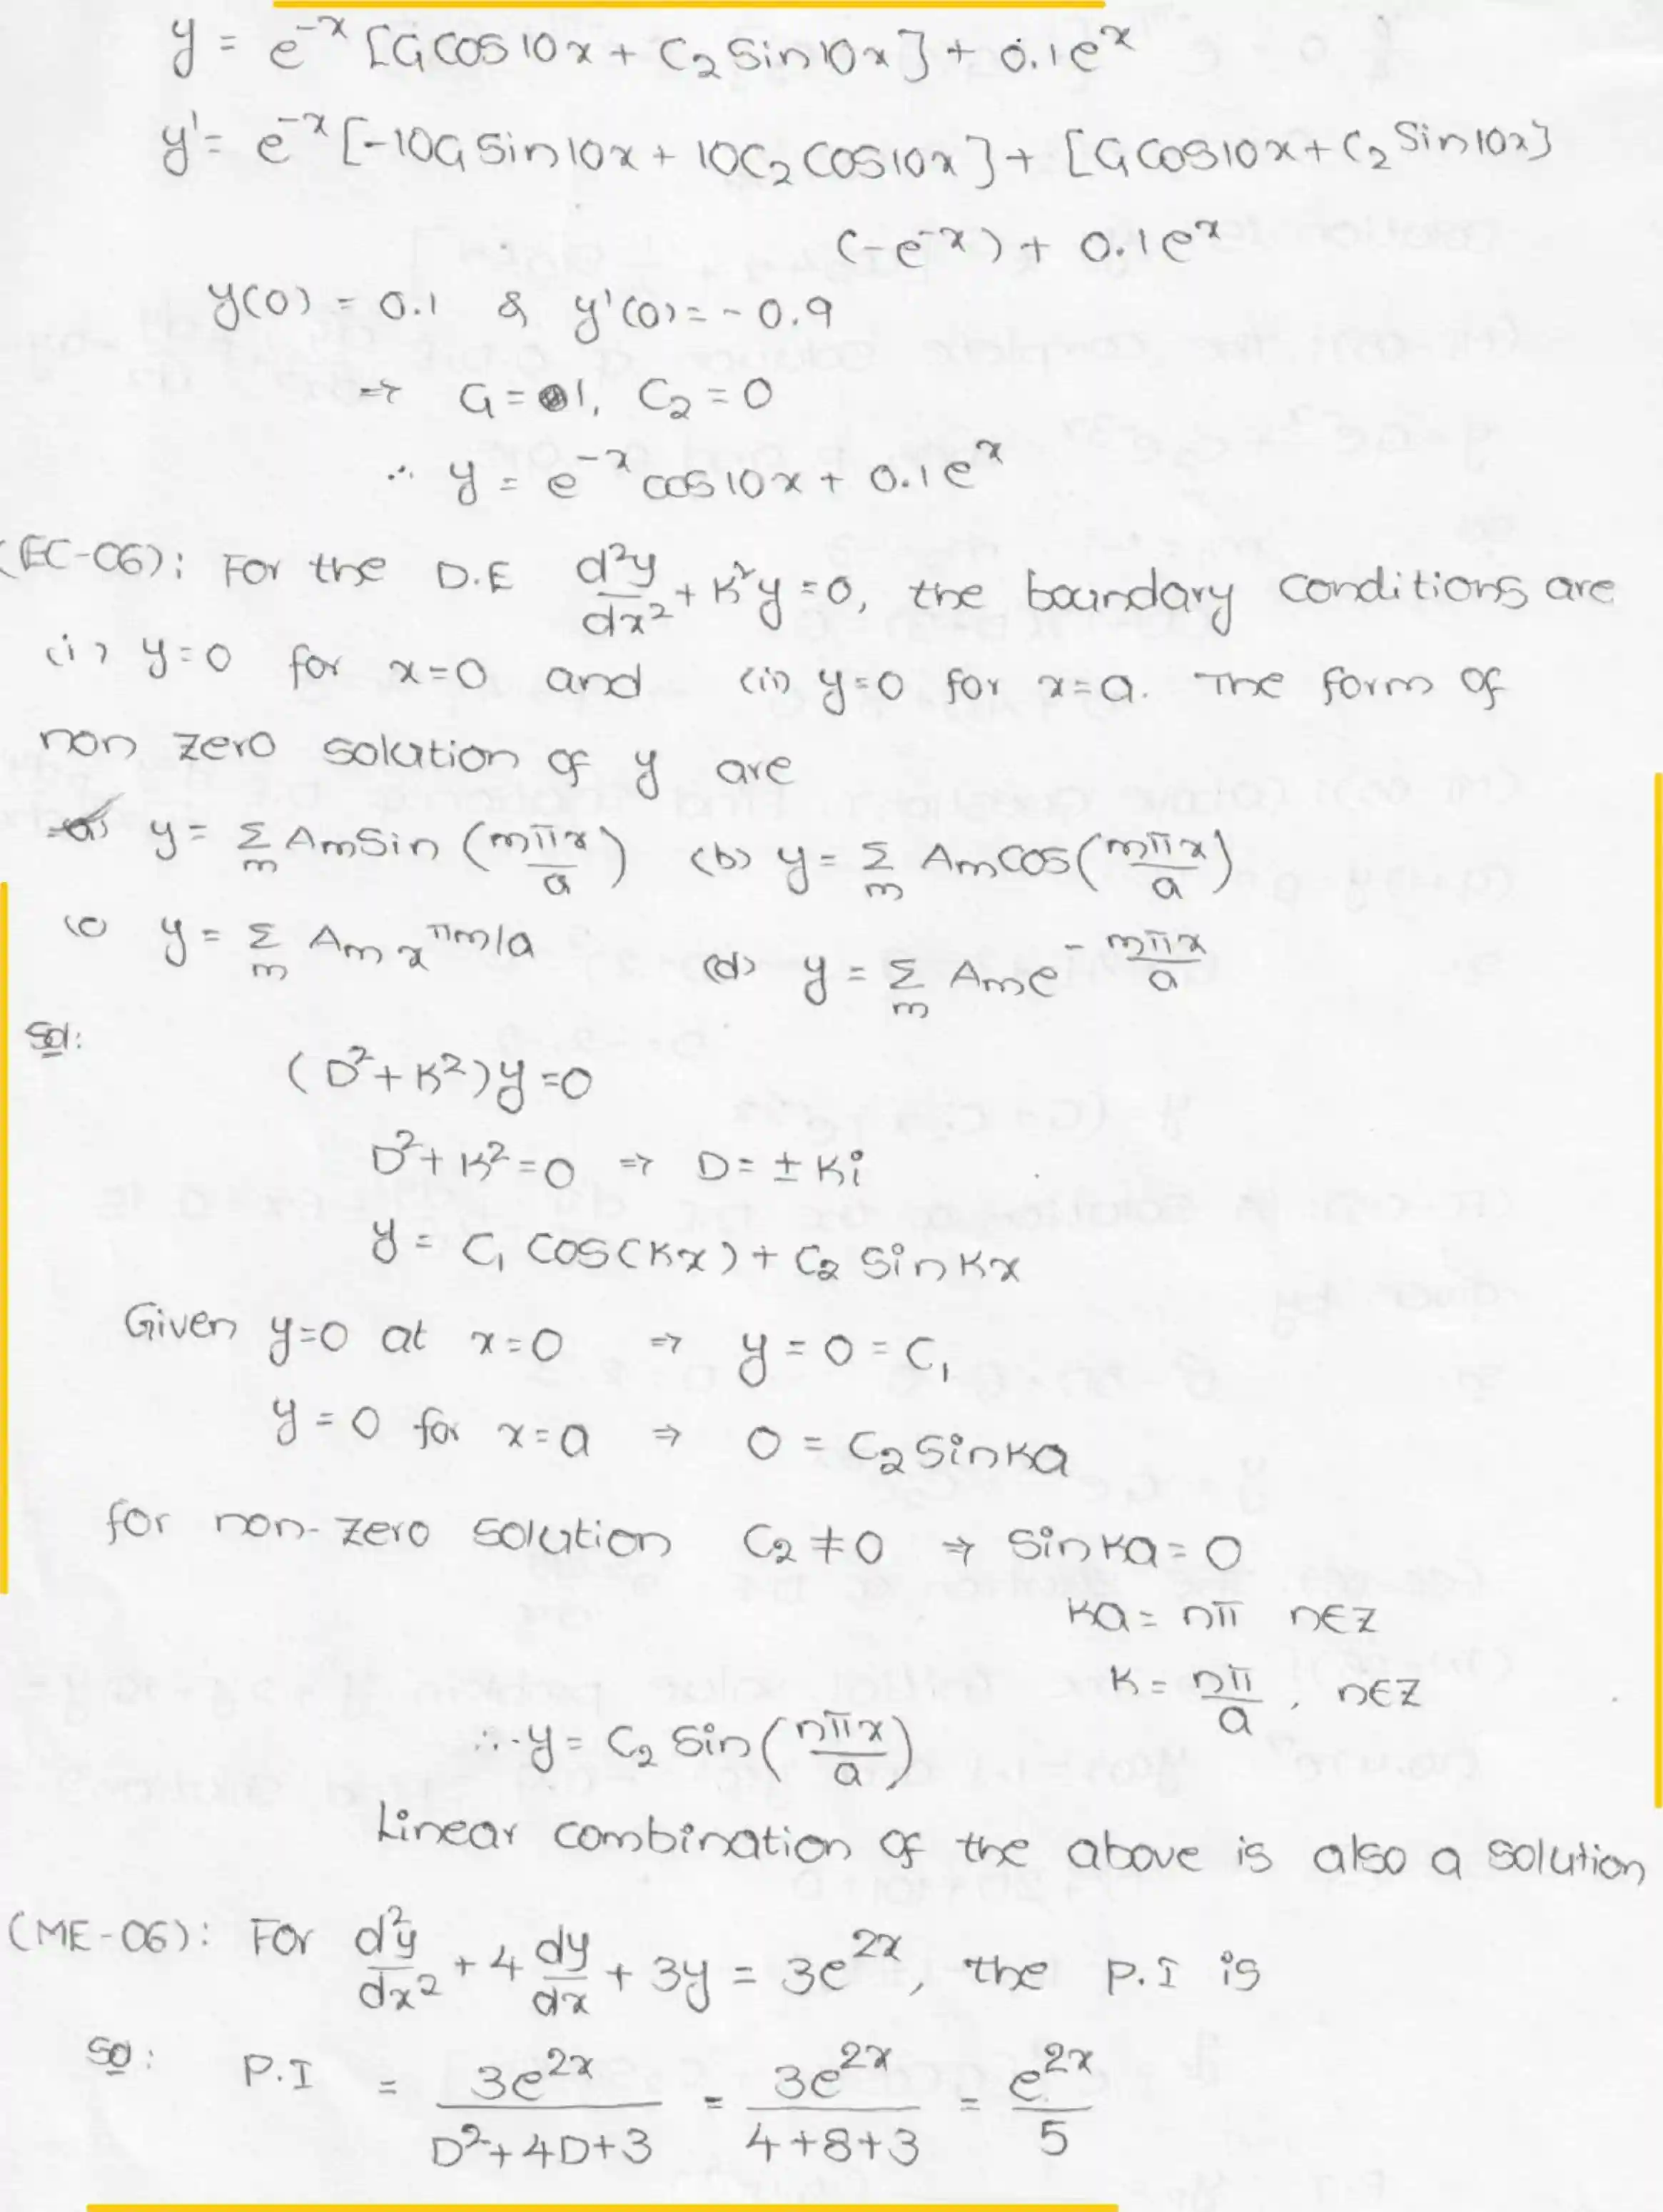 y = e^{-x} [C₁ cos 10x + C₂ sin 10x] + 0.1e^x
y' = e^{-x} [-10C₁ sin 10x + 10C₂ cos 10x] + [C₁ cos 10x + C₂ sin 10x]
(-e^{-x}) + 0.1e^x
y(0) = 0.1 & y'(0) = -0.9
⇒ C₁ = 1, C₂ = 0
∴ y = e^{-x} cos 10x + 0.1e^x
(EC-06): For the D.E d²y/dx² + K²y = 0, the boundary conditions are
(i) y=0 for x=0 and (ii) y=0 for x=a. The form of
non zero solution of y are
(a) y = Σ_m A_m sin (mπx/a) (b) y = Σ_m A_m cos (mπx/a)
(c) y = Σ_m A_m x^{πm/a}
(d) y = Σ_m A_m e^{-mπx/a}
Sol:
(D² + K²)y = 0
D² + K² = 0 ⇒ D = ± Ki
y = C₁ cos(Kx) + C₂ sin Kx
Given y=0 at x=0 ⇒ y = 0 = C₁
y = 0 for x=a ⇒ 0 = C₂ sin Ka
for non-zero solution C₂ ≠ 0 ⇒ sin Ka = 0
Ka = nπ n∈Z
K = nπ/a, n∈Z
∴ y = C₂ sin (nπx/a)
Linear combination of the above is also a solution
(ME-06): For d²y/dx² + 4 dy/dx + 3y = 3e^{2x}, the P.I is
Sol: P.I = 3e^{2x}/(D²+4D+3) = 3e^{2x}/(4+8+3) = e^{2x}/5